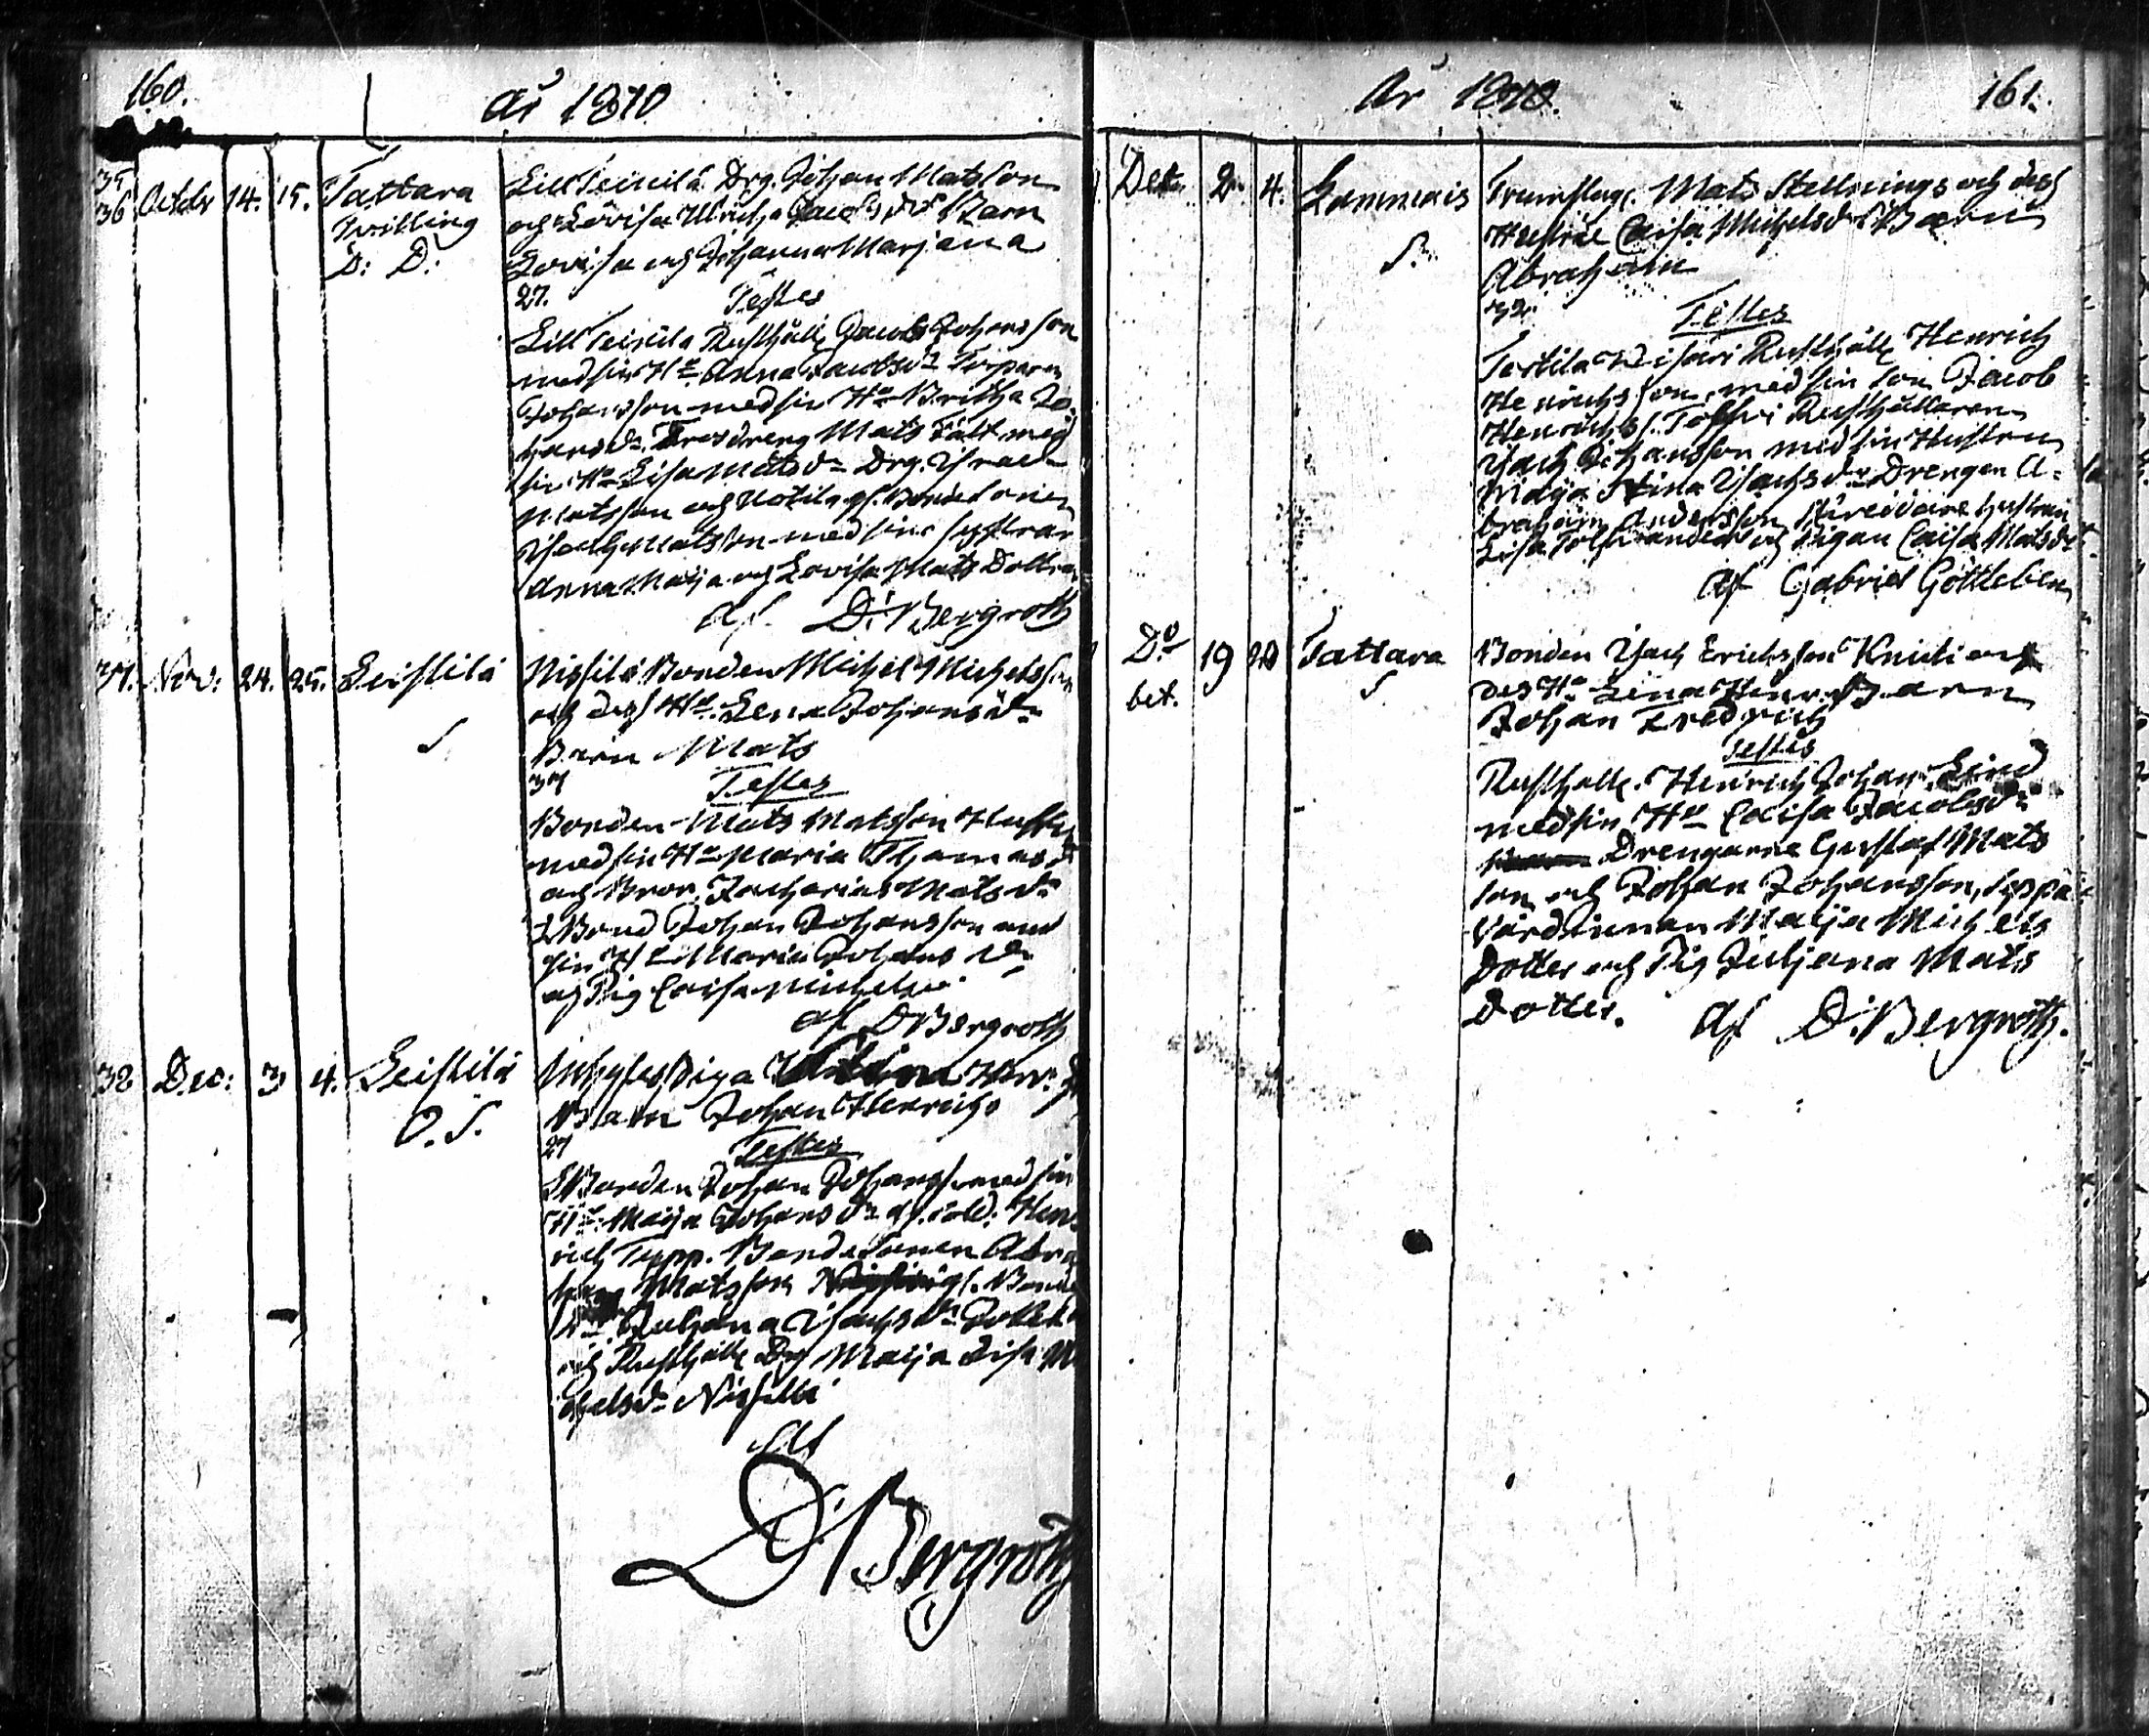 160.
År 1810
35
36 Octobr 14. 15. Tattara
Tvilling
D: D:
Lill Teinilä Drg. Johan Matsson
och Lovisa Ulrica Jacobsdr Barn
Lovisa och Johanna Marjana
27.
Testes
Lill Teinilä Rusthåll. Jacob Johansson
med sin Ho Anna Jacobsdr Torparen
Johansson med sin Ho Britha Jo-
hansdr. Mats Fält med
sin Ho Lisa Matsdr Drg. Israel
Matsson och
Isach Matsson med sine systrar
Anna Maija och Lovisa Mats Döttrar
Af. D: Bergroth
37. Nov: 24. 25. Leistilä
S
Nissilä Bonden Michel Michelsson
och dess Ho. Lena Johansdr
Barn Mats
37
Testes
Bonden Mats Matsson
med sin Ho Maria Thomasd
och Bror Zacharias Mats
Bond Johan Johansson med
sin H Maria Johans dr
och Pig Caisa Michelsd
af D Bergroth
38 Dec: 3 4. Leistilä
O. S.
Inhyses Piga Henr.
Barn Johan Henrich
27
Testes
Bonden Johan Johanss. med sin
Ho. Maija Johans dr Hen-
rich Topp. Bonde Sonen Abra
ham Matsson Bonde
Juliana Isachsdr
och Rusthåll. Maija Lisa Mi
chelsdr Nissilä
Af
D: Bergroth
År 1810.
161.
Dec. 2. 4. Gammais
S.
Trumslag. Mats Stellnings och dess
Hustru Caisa Michelsdr Barn
Abraham
32.
Testes
Rusthåll. Henrich
Henrichsson med sin son Jacob
Henrichs. Tolfvi Rusthållaren
Isach Johansson med sin Hustru
Maija Stina Isachsdr Drengen A-
braham Andersson, hustrun
Lisa och Pigan Caisa Matsdr
Af Gabriel Gottleben
Do 19 20 Tattara
bet. S
Bonden Isach Erichsson Knuti och
des Ho Lena Henr. Barn
Johan Fredrich
Testes
Rusthåll. Henrich Johan Lind
med sin Ho Caisa Jacobsdr
Drengarne Gustaf Mats
son och Johan Johansson,
Värdinnan Maija Michels
Dotter och Pig Juljana Mats
Dotter. Af D: Bergroth.